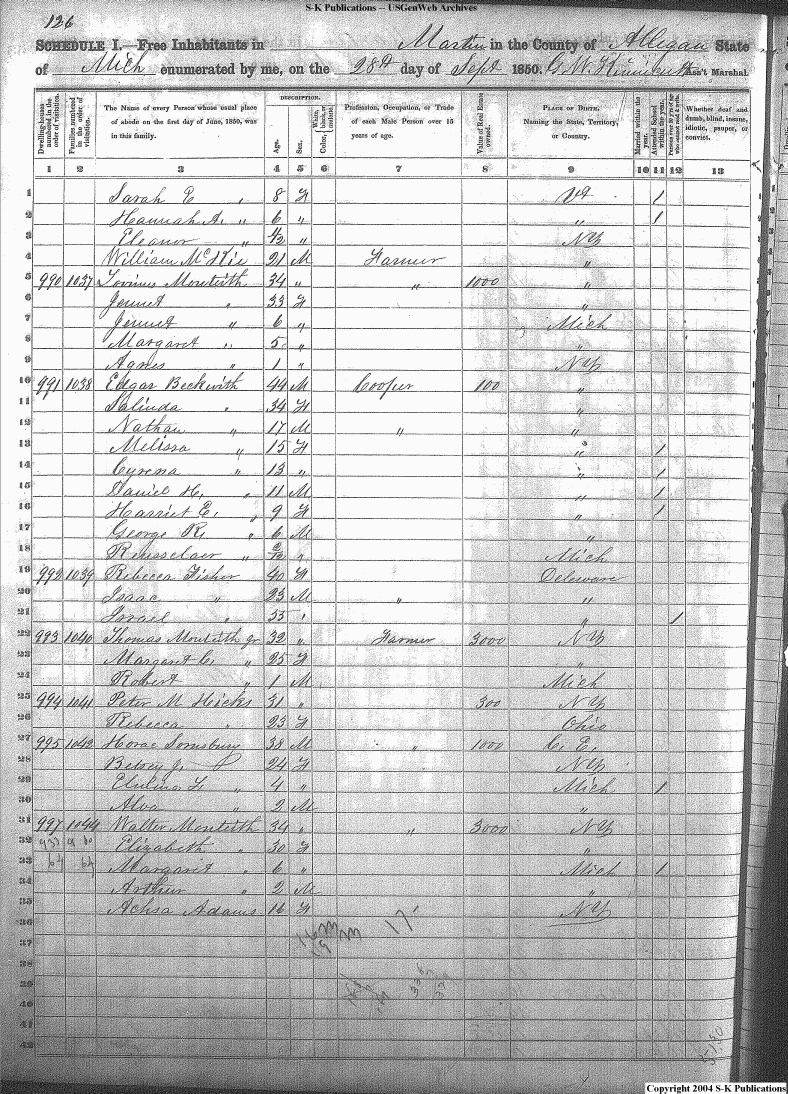 S-K Publications -- USGenWeb Archives
126
SCHEDULE I.—Free Inhabitants in Martin in the County of Allegan State
of Mich enumerated by me, on the 28th day of Sept 1850. G. W. Ass't Marshal.
Dwelling-houses numbered in the order of visitation.
Families numbered in the order of visitation.
The Name of every Person whose usual place of abode on the first day of June, 1850, was in this family.
DESCRIPTION.
Age.
Sex.
Color, White, black, or mulatto.
Profession, Occupation, or Trade of each Male Person over 15 years of age.
Value of Real Estate owned.
PLACE OF BIRTH. Naming the State, Territory, or Country.
Married within the year.
Attended School within the year.
Persons over 20 y'rs of age who cannot read & write.
Whether deaf and dumb, blind, insane, idiotic, pauper, or convict.
1 2 3 4 5 6 7 8 9 10 11 12 13
1 Sarah E " 8 F Vt 1
2 Hannah A. " 6 " " 1
3 Eleanor " 4/12 " NY
4 William 21 M Farmer "
5 990 1037 Lovinus Monteith 34 " " 1000 "
6 Jennet " 33 F "
7 Jennet " 6 " Mich
8 Margaret " 5 " "
9 Agnes " 1 " NY
10 991 1038 Edgar Beckwith 44 M Cooper 100 "
11 Salinda " 34 F "
12 Nathan " 17 M " "
13 Melissa " 15 F " 1
14 Cyrena " 13 " " 1
15 Daniel H. " 11 M " 1
16 Harriet E. " 9 F " 1
17 George R. " 6 M "
18 Rensselaer " /12 " Mich
19 992 1039 Rebecca Fisher 40 F Deleware
20 Isaac " 23 M " "
21 Israel " 55 " " 1
22 993 1040 Thomas Monteith jr 32 " Farmer 3000 NY
23 Margaret C. " 25 F "
24 Robert " 1 M Mich
25 994 1041 Peter M Hicks 31 " 300 NY
26 Rebecca " 23 F Ohio
27 995 1042 Horac 38 M " 1000 C. E.
28 Betsey J. 24 F NY
29 " 4 " Mich 1
30 Alva " 2 M "
31 997 1044 Walter Monteith 34 " " 3000 NY
32 Elizabeth " 30 F "
33 64 64 Margaret " 6 " Mich 1
34 Arthur " 2 M "
35 Achsa Adams 16 F NY
36
37 16 m 19 m 17
38
39
40
41
42
Copyright 2004 S-K Publications